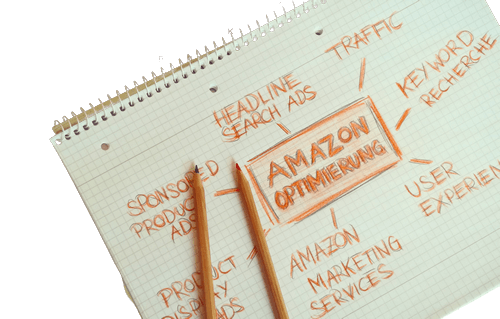 TRAFFIC
HEADLINE
SEARCH ADS
KEYWORD
RECHERCHE
AMAZON
OPTIMIERUNG
SPONSORED
PRODUCT
ADS
USER
EXPERIEN
AMAZON
MARKETING
SERVICES
PRODUCT
DISPLAY
ADS